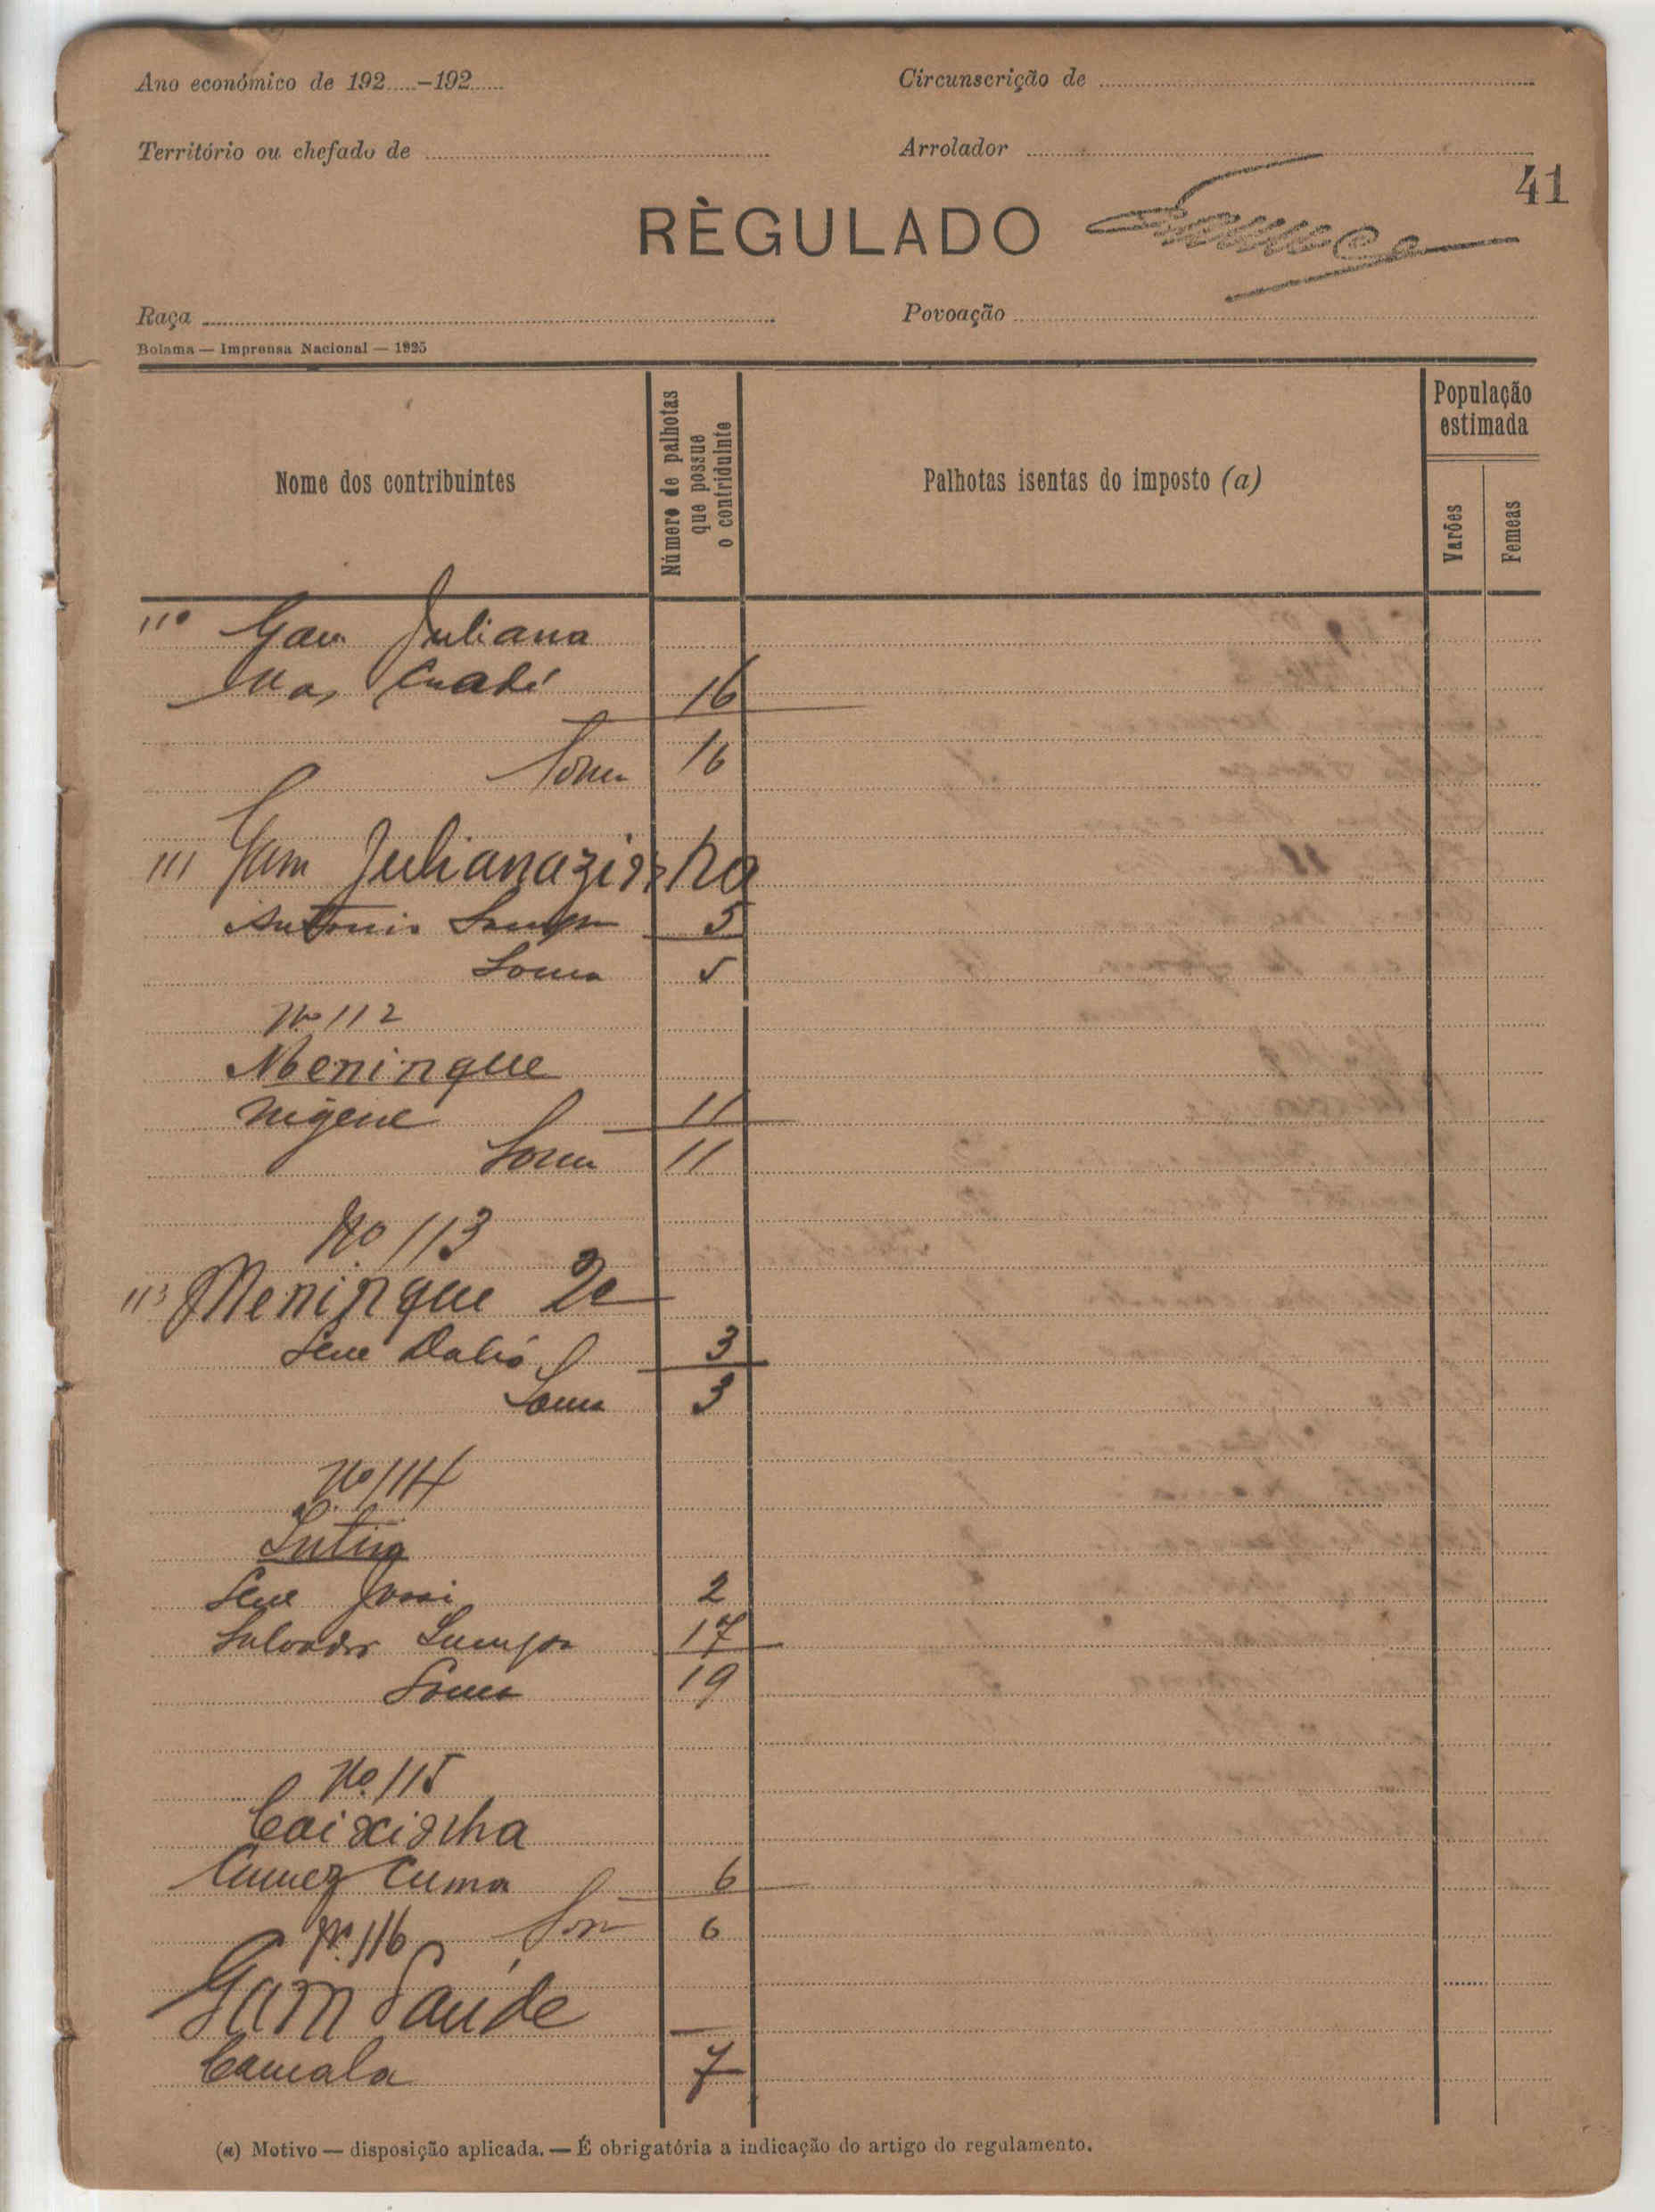 Ano económico de 192.....–192......
Circunscrição de
Território ou chefado de
Arrolador
41
RÈGULADO
Raça
Povoação
Bolama — Imprensa Nacional — 1925
Nome dos contribuintes
Número de palhotas
que possue
o contriduinte
Palhotas isentas do imposto (a)
População
estimada
Varões
Femeas
110 Gam Juliana
16
Soma 16
111 Gam Julianazinha
Antonio 5
Soma 5
No 112
Meninque
11
Soma 11
No 113
113 Meninque 2º
Sene 3
Soma 3
No 114
Sene 2
Salvador 17
Soma 19
No. 115
Caixinha
Cuma 6
Som 6
Nº. 116
Gam Saúde
Camala 7
(a) Motivo — disposição aplicada. — É obrigatória a indicação do artigo do regulamento.